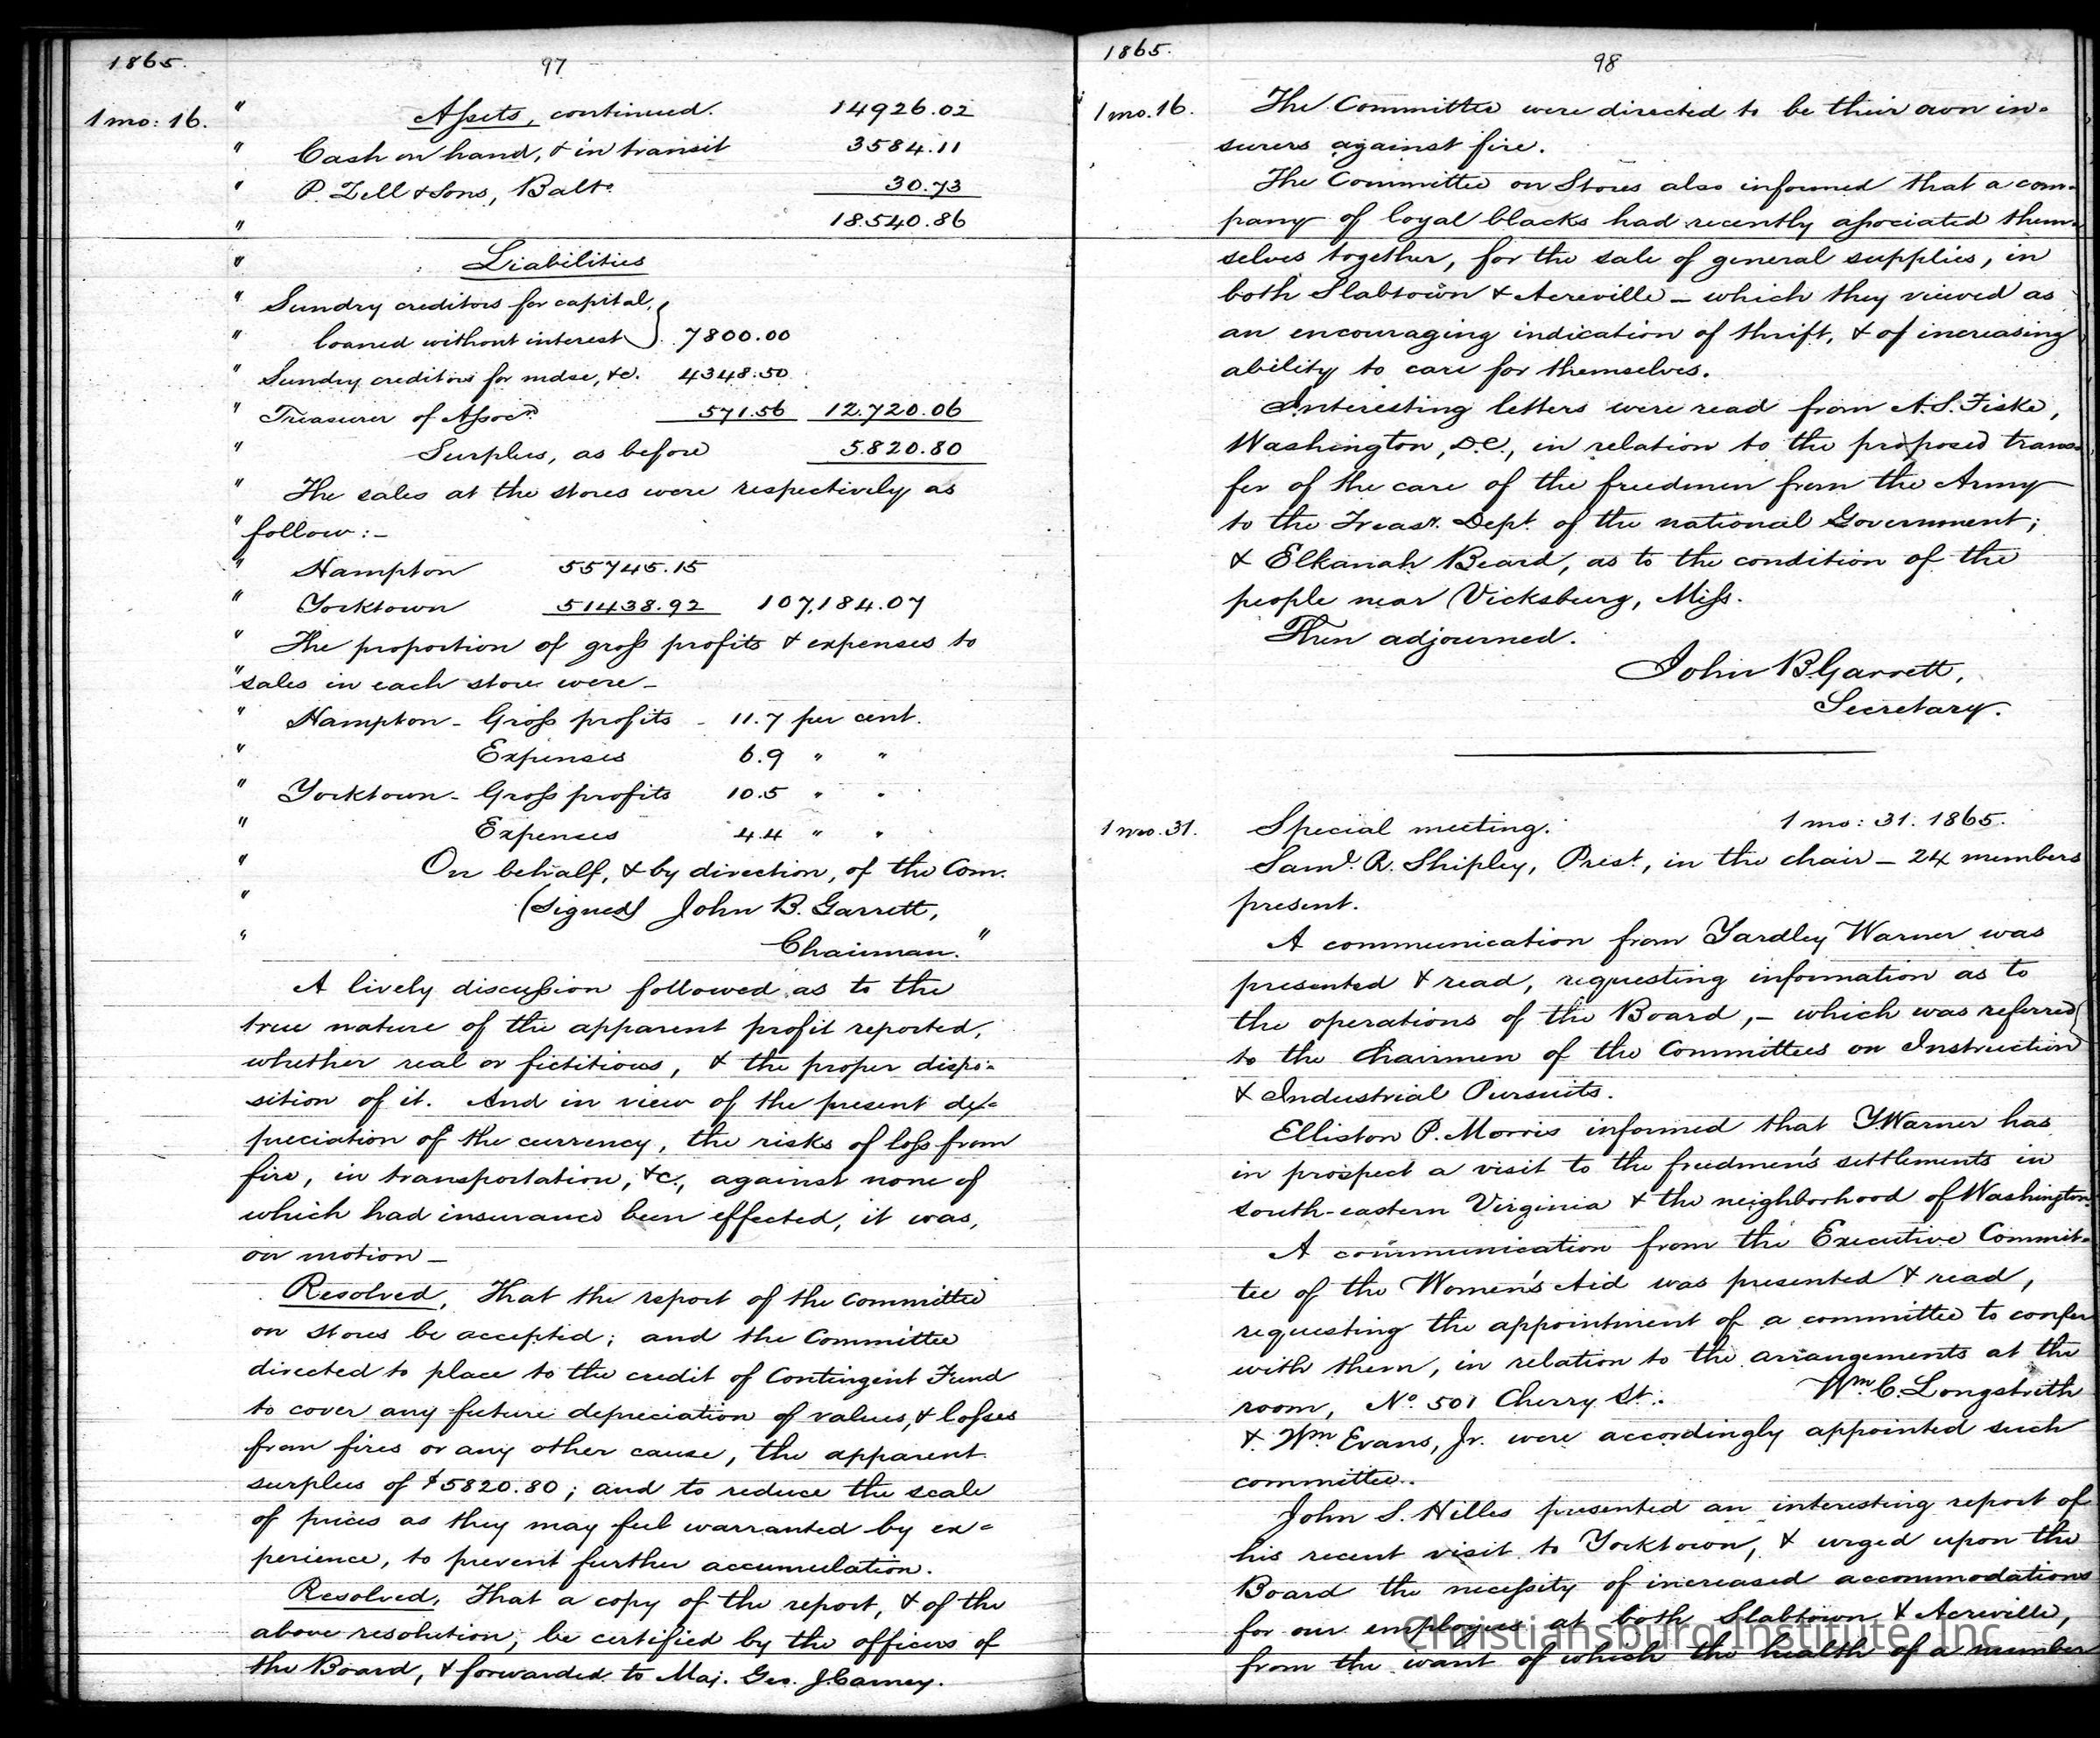 1865.
97
1 mo: 16. " Assets, continued. 14926.02
" Cash on hand, & in transit 3584.11
" P. Zell & Sons, Balto. 30.73
" 18540.86
" Liabilities
" Sundry creditors for capital,
" loaned without interest } 7800.00
" Sundry creditors for mdse, &c. 4348.50
" Treasurer of Assocn. 571.56 12.720.06
" Surplus, as before 5.820.80
" The sales at the stores were respectively as
" follow:-
" Hampton 55745.15
" Yorktown 51438.92 107,184.07
" The proportion of gross profits & expenses to
" sales in each store were-
" Hampton - Gross profits - 11.7 per cent.
" Expenses 6.9 " "
" Yorktown - Gross profits 10.5 " "
" Expenses 4.4 " "
" On behalf, & by direction, of the Com.
" (Signed) John B. Garrett,
" Chairman."
A lively discussion followed as to the
true nature of the apparent profit reported,
whether real or fictitious, & the proper dispo=
sition of it. And in view of the present de=
preciation of the currency, the risks of loss from
fire, in transportation, &c., against none of
which had insurance been effected, it was,
on motion -
Resolved, That the report of the Committee
on Stores be accepted; and the Committee
directed to place to the credit of Contingent Fund
to cover any future depreciation of values, & losses
from fires or any other cause, the apparent
surplus of $5820.80; and to reduce the scale
of prices as they may feel warranted by ex=
perience, to prevent further accumulation.
Resolved, That a copy of the report, & of the
above resolution, be certified by the officers of
the Board, & forwarded to Maj. Geo. J. Carney.
1865.
98
1 mo. 16. The Committee were directed to be their own in=
surers against fire.
The Committee on Stores also informed that a com=
pany of loyal blacks had recently associated them=
selves together, for the sale of general supplies, in
both Slabtown & Acreville - which they viewed as
an encouraging indication of thrift, & of increasing
ability to care for themselves.
Interesting letters were read from A. S. Fiske,
Washington, D.C., in relation to the proposed trans=
fer of the care of the freedmen from the Army
to the Treasy. Dept. of the national Government;
& Elkanah Beard, as to the condition of the
people near Vicksburg, Miss.
Then adjourned.
John B. Garrett,
Secretary.
1 mo. 31. Special meeting. 1 mo: 31. 1865.
Saml. R. Shipley, Prest., in the chair - 24 members
present.
A communication from Yardley Warner was
presented & read, requesting information as to
the operations of the Board, - which was referred
to the Chairmen of the Committees on Instruction
& Industrial Pursuits.
Elliston P. Morris informed that Y. Warner has
in prospect a visit to the freedmen's settlements in
south-eastern Virginia & the neighborhood of Washington.
A communication from the Executive Commit=
tee of the Women's Aid was presented & read,
requesting the appointment of a committee to confer
with them, in relation to the arrangements at the
room, No. 501 Cherry St. Wm. C. Longstreth
& Wm. Evans, Jr. were accordingly appointed such
committee.
John S. Hilles presented an interesting report of
his recent visit to Yorktown, & urged upon the
Board the necessity of increased accommodations
for our employees at both Slabtown & Acreville,
from the want of which the health of a number
Christiansburg Institute, Inc